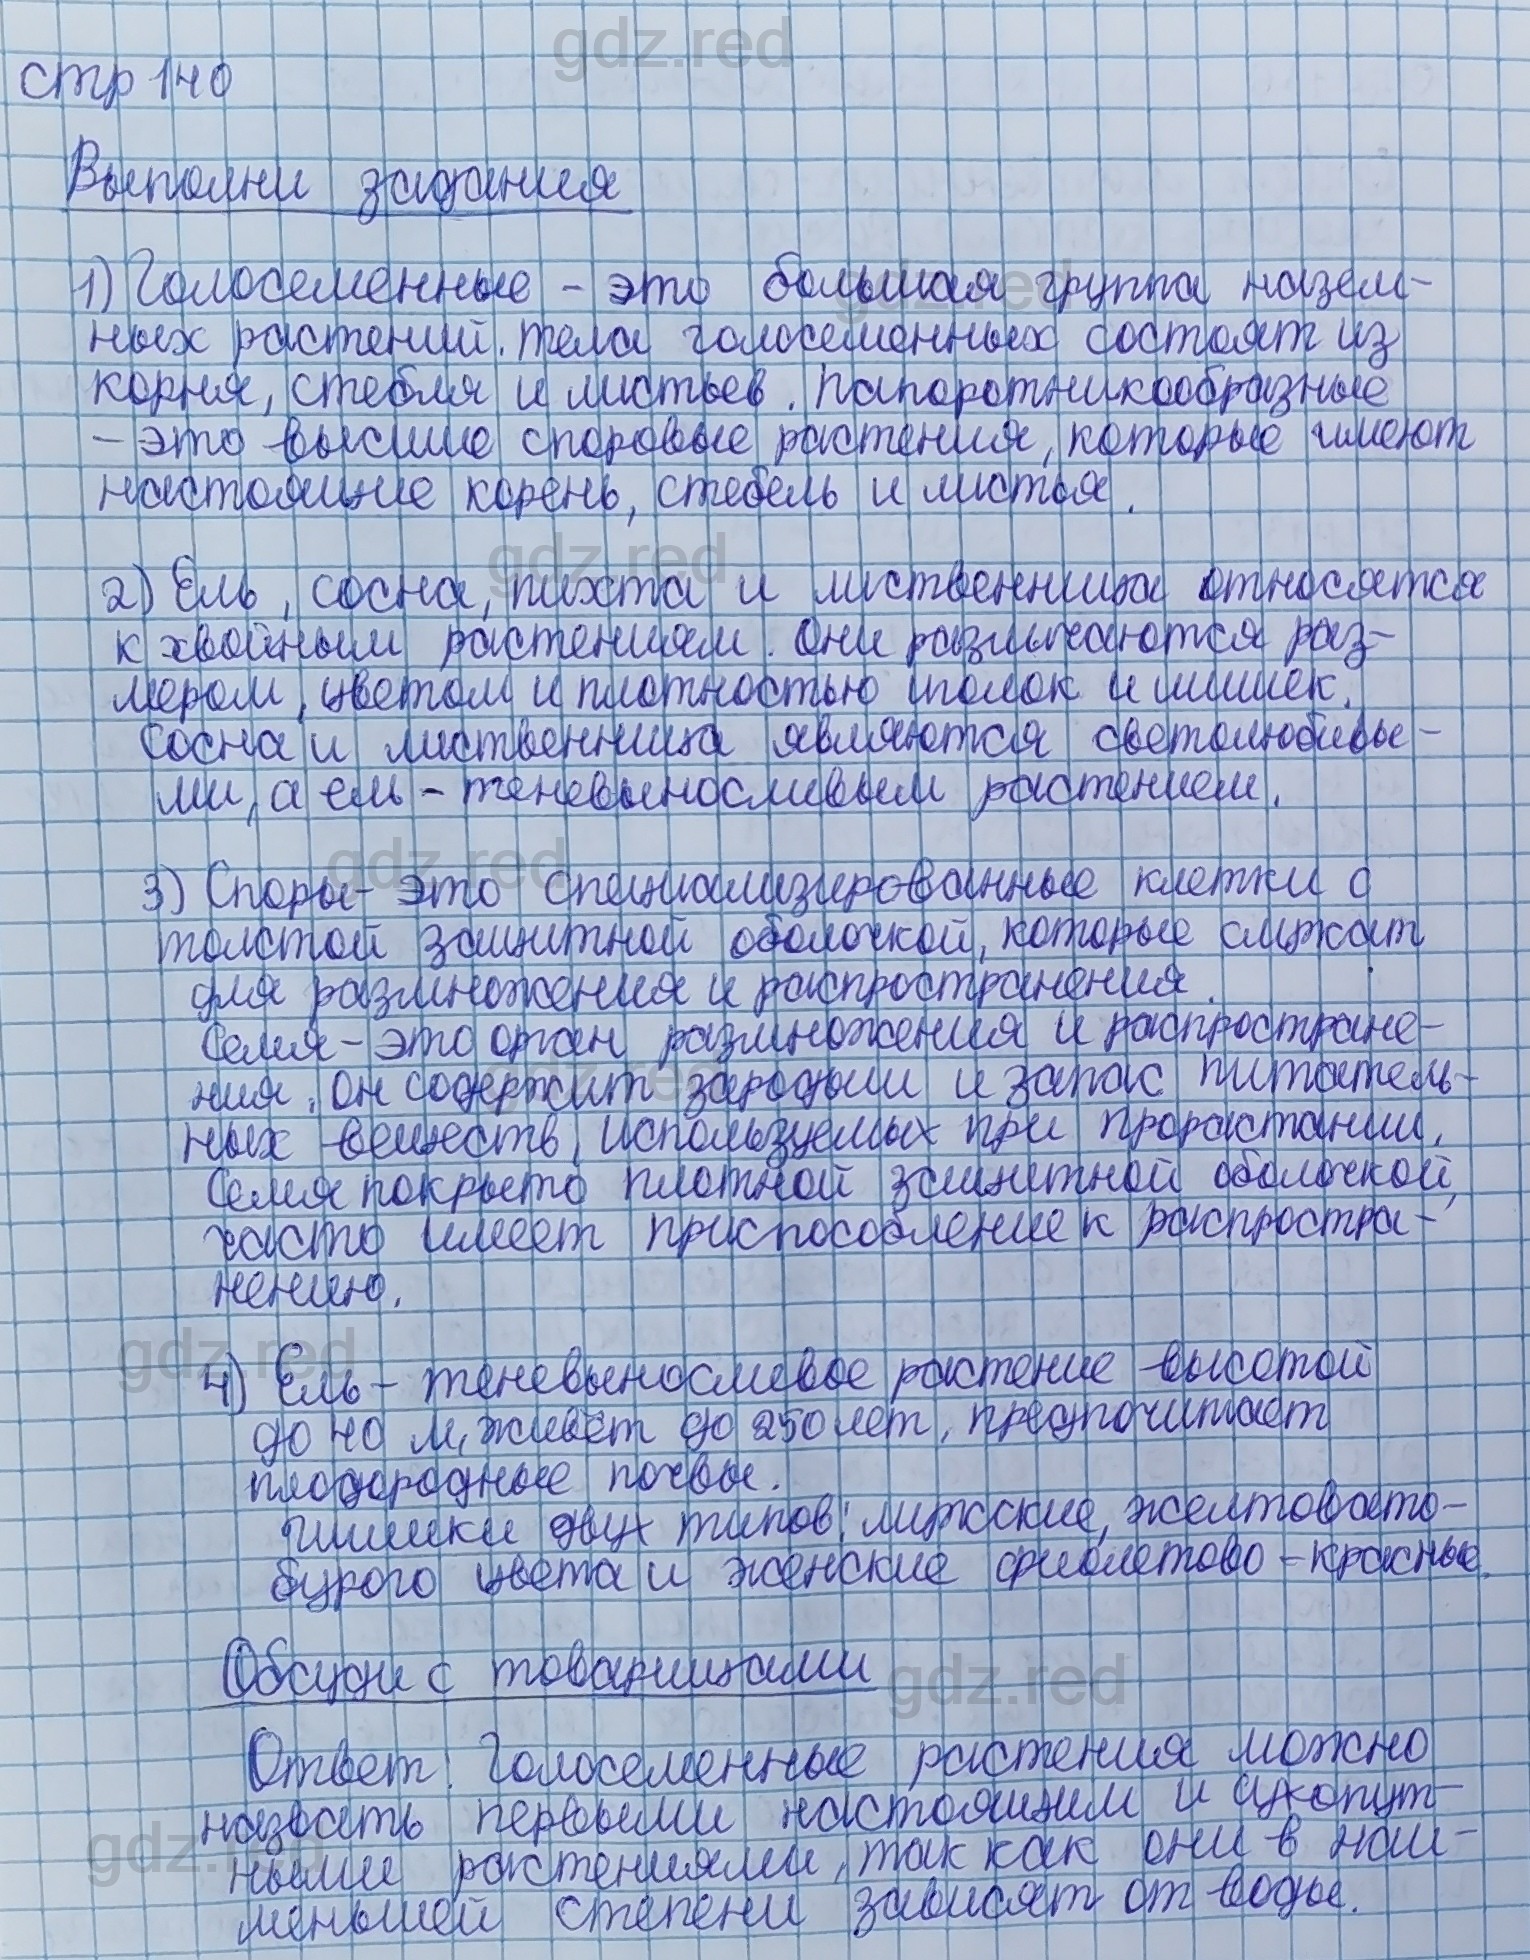 gdz.red
стр 140
Выполни задания
gdz.red
1) Голосеменные - это большая группа назем-
ных растений. Тела голосеменных состоят из
корня, стебля и листьев. Папоротникообразные
- это высшие споровые растения, которые имеют
настоящие корень, стебель и листья.
gdz.red
2) Ель, сосна, пихта и лиственница относятся
к хвойным растениям. Они различаются раз-
мером, цветом и плотностью иголок и шишек.
Сосна и лиственница являются светолюбивы-
ми, а ель - теневыносливым растением.
gdz.red
3) Споры - это специализированные клетки с
толстой защитной оболочкой, которые служат
для размножения и распространения.
Семя - это орган размножения и распростране-
gdz.red
ния. Он содержит зародыш и запас питатель-
ных веществ, используемых при прорастании.
Семя покрыто плотной защитной оболочкой,
часто имеет приспособление к распростра-
нению.
gdz.red
4) Ель - теневыносливое растение высотой
до 40 м, живёт до 250 лет, предпочитает
плодородные почвы.
Шишки двух типов: мужские, желтовато-
бурого цвета и женские фиолетово-красные.
Обсуди с товарищами
gdz.red
Ответ: Голосеменные растения можно
назвать первыми настоящим и сухопут-
gdz.red
ными растениями, так как они в наи-
меньшей степени зависят от воды.